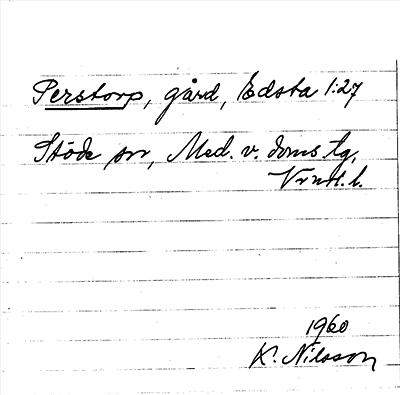 Perstorp, gård, Edsta 1:27
Stöde sn, Med. v. doms. tg,
Vrnl. l.
1960
K. Nilsson